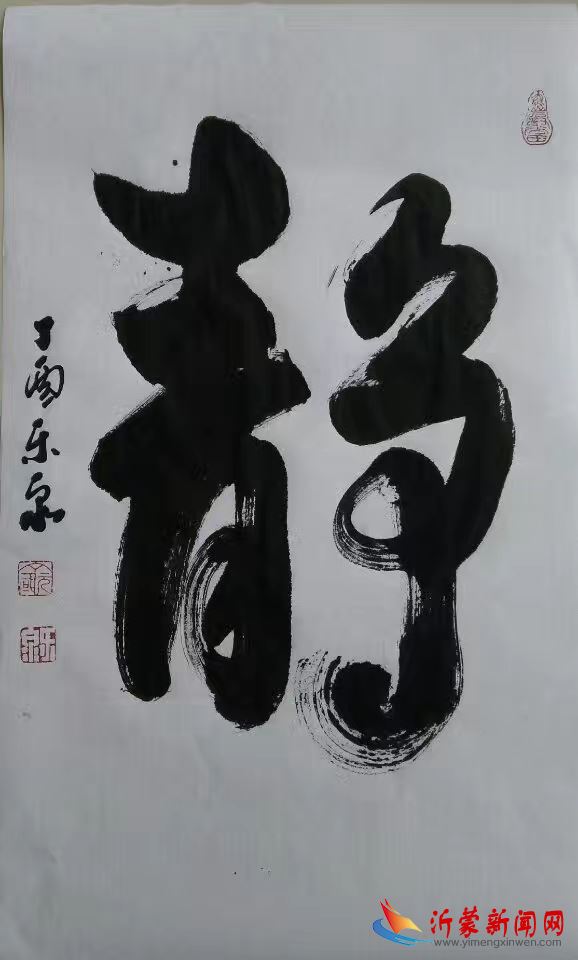 静
丁酉乐泉
沂蒙新闻网
www.yimengxinwen.com